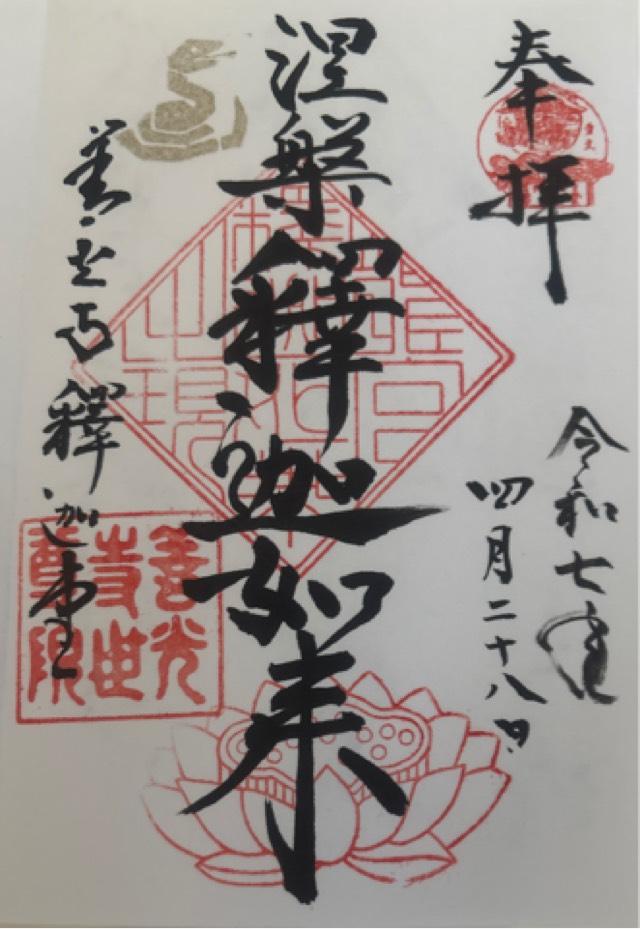 奉拝
令和七年
四月二十八日
涅槃釋迦如来
善光寺釋迦堂
善光
寺世
尊院